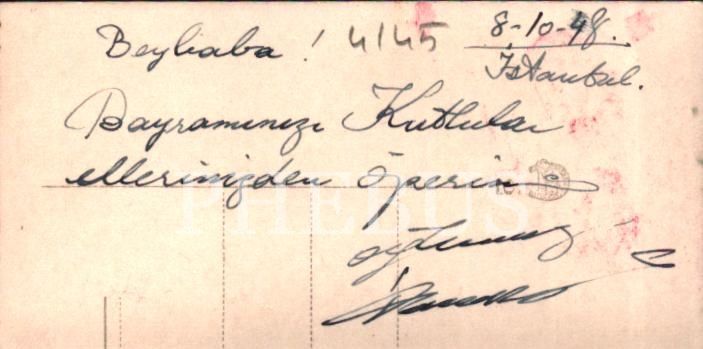 Beybaba! 4145 8-10-48.
İstanbul.
Bayramınızı Kutlular
ellerinizden öperim
oğlunuz
PHEBUS